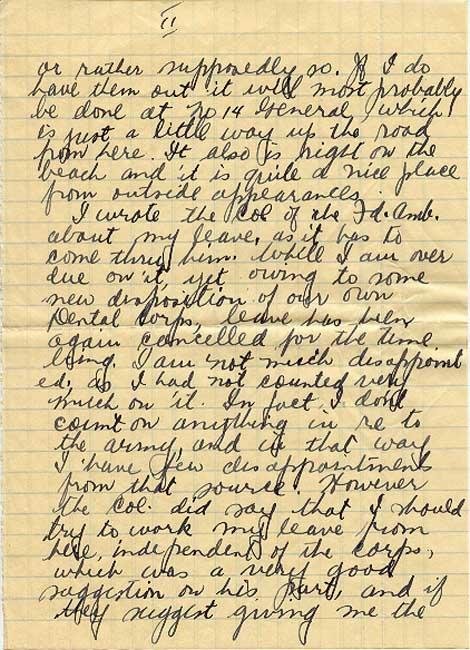 II
or rather supposedly so. If I do
have them out it will most probably
be done at No 14 General, which
is just a little way up the road
from here. It also is right on the
beach and it is quite a nice place
from outside appearances.
I wrote the Col of the Fd. Amb.
about my leave, as it has to
come thru him. While I am over
due on it, yet owing to some
new disposition of our own
Dental Corps, leave has been
again cancelled for the time
being. I am not much disappoint
ed, as I had not counted very
much on it. In fact I dont
count on anything in re to
the army and in that way
I have few disappointments
from that source. However
the Col. did say that I should
try to work my leave from
here, independent of the corps,
which was a very good
suggestion on his part, and if
they suggest giving me the